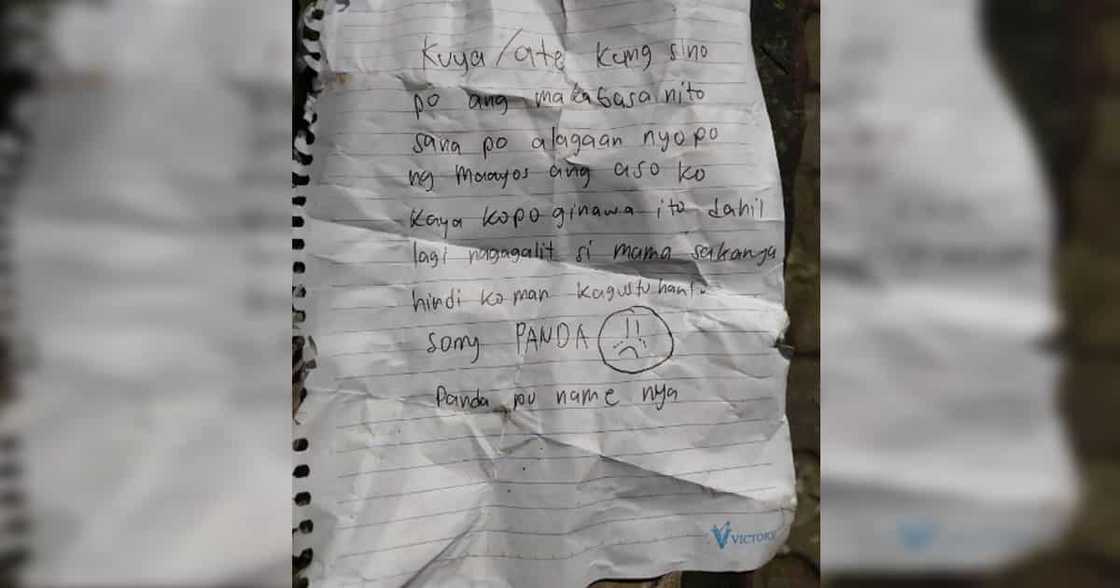 Kuya/ate kung sino
po ang makabasa nito
sana po alagaan nyo po
ng maayos ang aso ko
kaya kopo ginawa ito dahil
lagi nagagalit si mama sakanya
hindi ko man kagustuhan to
sorry PANDA
Panda po name nya
VICTORY